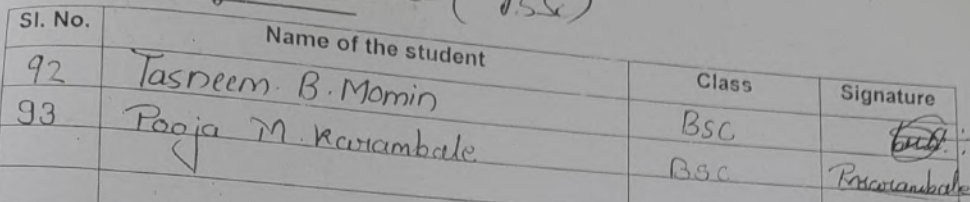 (B.Sc)
Sl. No. Name of the student Class Signature
92 Tasneem. B. Momin BSC
93 Pooja M. Karambale BSC PMKarambale